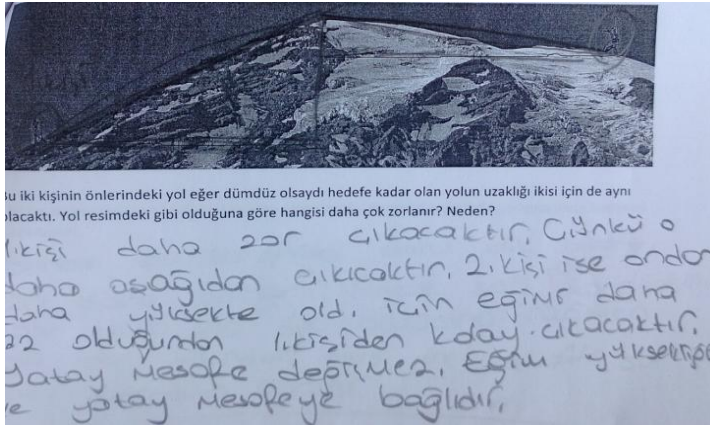 Bu iki kişinin önlerindeki yol eğer dümdüz olsaydı hedefe kadar olan yolun uzaklığı ikisi için de aynı
olacaktı. Yol resimdeki gibi olduğuna göre hangisi daha çok zorlanır? Neden?
1.kişi daha zor çıkacaktır, Çünkü o
daha aşağıdan çıkıcaktır, 2.kişi ise ondan
daha yüksekte old. için eğimi daha
az olduğundan 1.kişiden kolay çıkacaktır.
Yatay mesafe değişmez. Eğim yüksekliğe
ve yatay mesafeye bağlıdır,